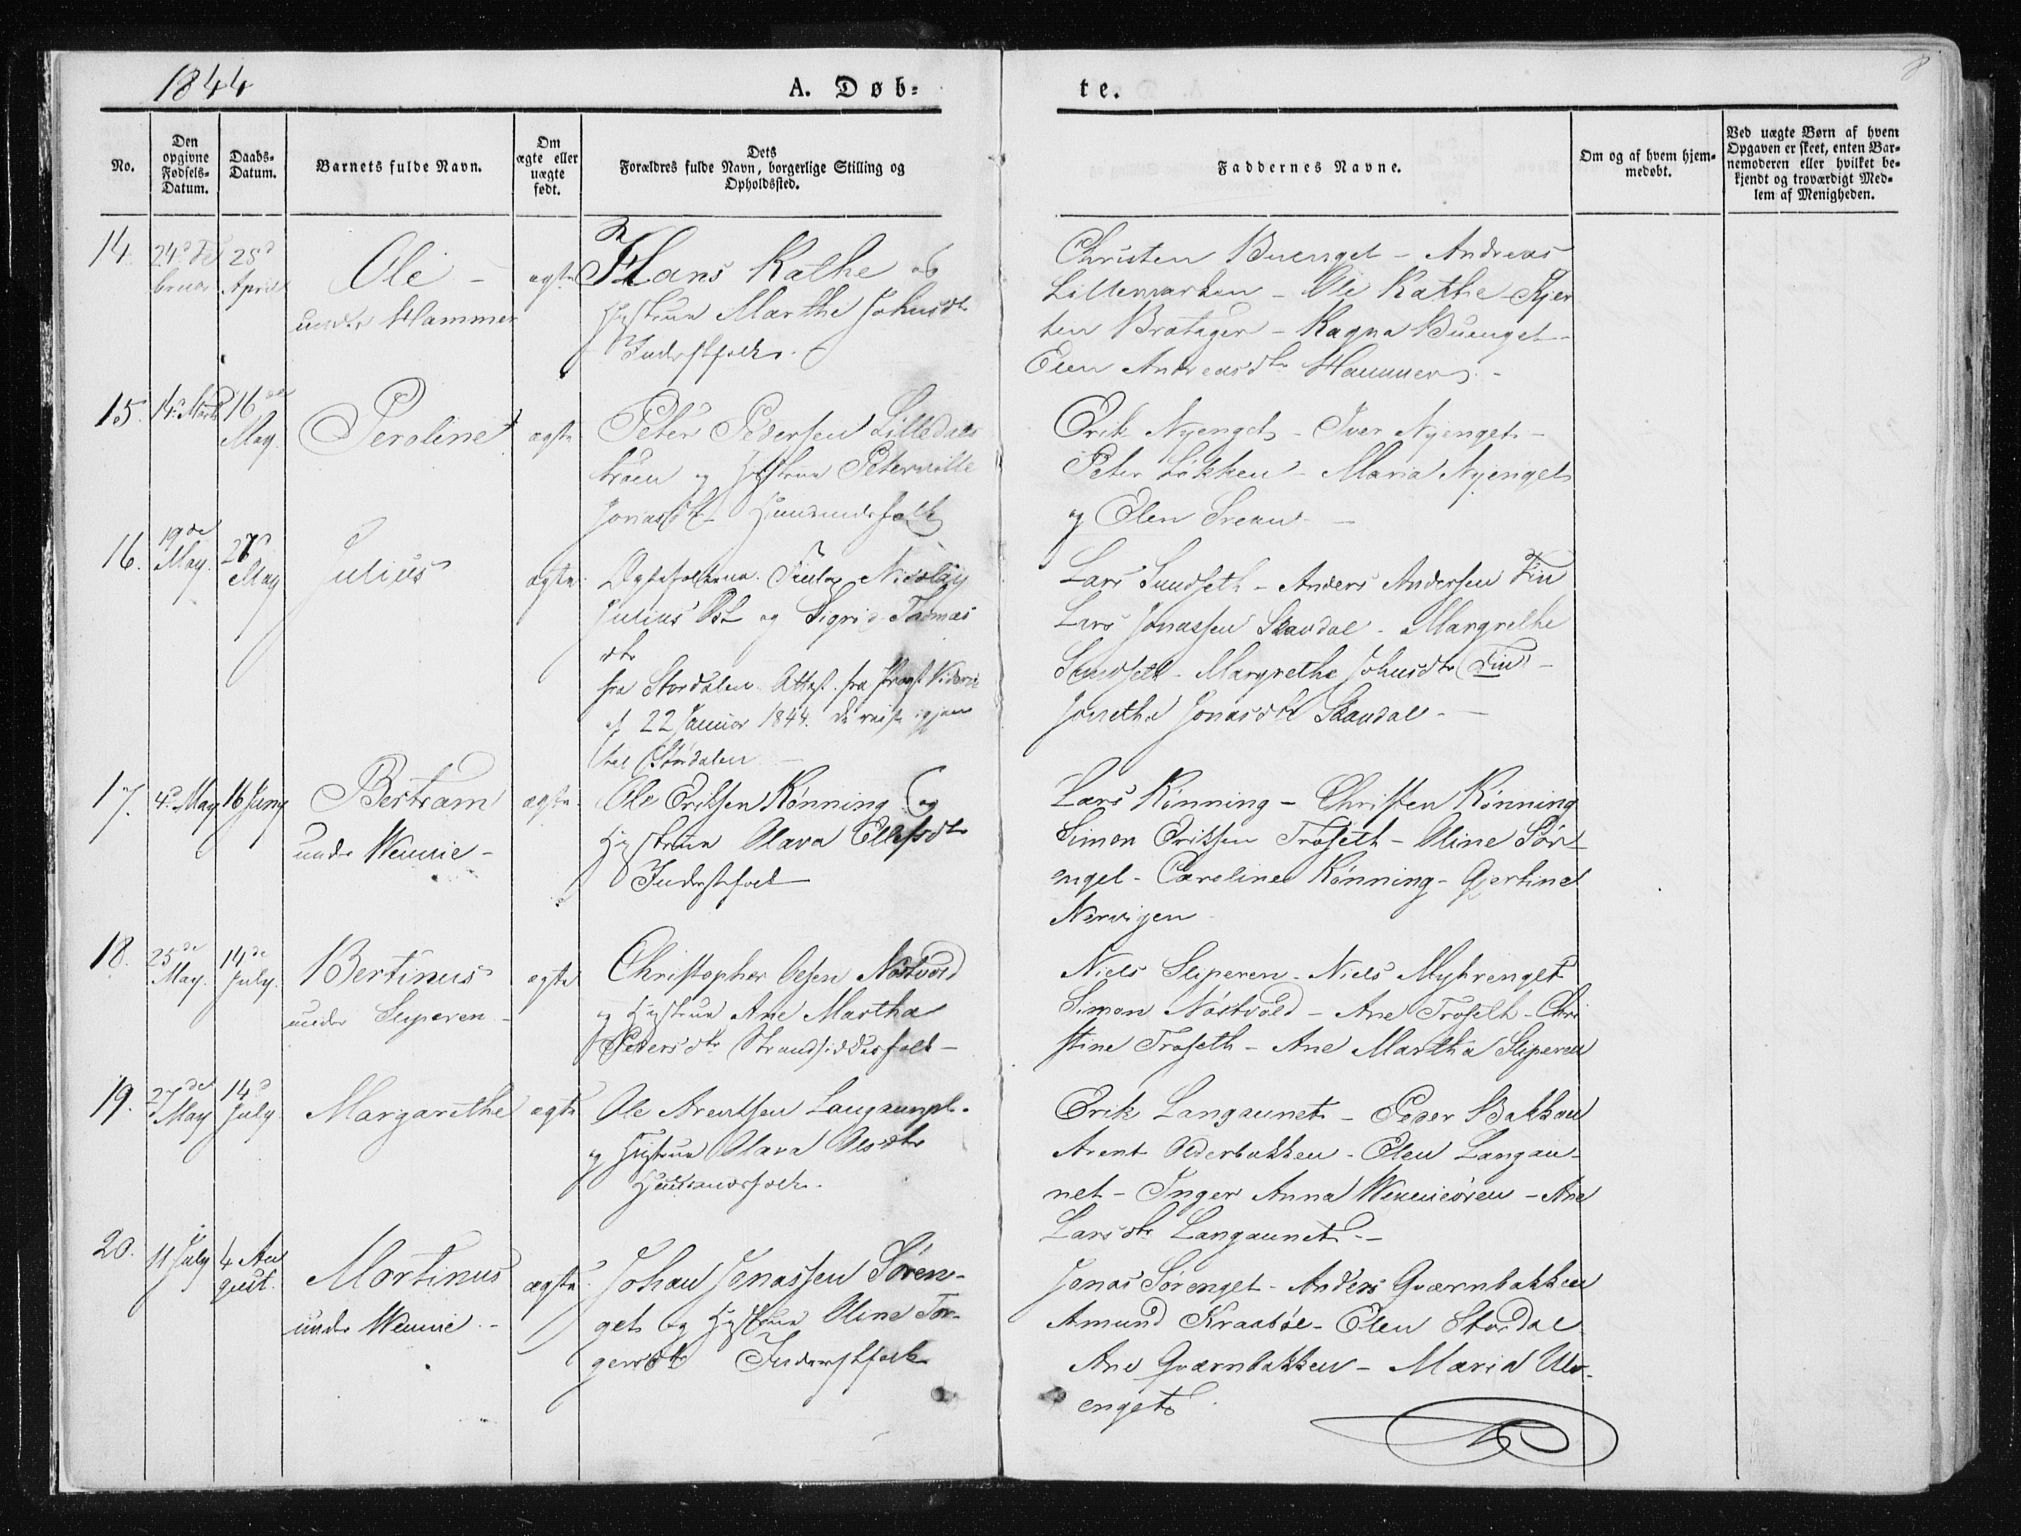 1844
A. Døb-
te.
8
No.
Den opgivne Fødsels-Datum.
Daabs-Datum.
Barnets fulde Navn.
Om ægte eller uægte født.
Dets Forældres fulde Navn, borgerlige Stilling og Opholdssted.
Faddernes Navne.
Om og af hvem hjem-medøbt.
Ved uægte Børn af hvem Opgaven er skeet, enten Bar-nemoderen eller hvilket be-kjendt og troværdigt Med-lem af Menigheden.
14. 24d Fe 28d Ole - ægte Hans Kathe og
bruar April under Hammer Hustrue Marthe Johnsdtr
Inderstfolk.
Christen Buenget - Andreas
Lillemarken - Ole Kathe - Kjer
sten Bratager - Ragna Buenget
Elen Andreasdtr Hammer. -
15. 14d Marts 16de Peroline ægte Peter Pedersen Lilledals
May. braaen og Hustrue Peternille
Jonasdtr Huusmandsfolk
Erik Nyenget - Iver Nyenget -
Peter Løkken - Maria Nyenget
og Elen
16. 19de 27d Julius ægte Ægtefolkene Nicolay
May. May Julius og Sigrid Thomas
dtr
fra Stordalen. Attest. fra Provst
af 22 Januar 1844. De reise igjen
til Stordalen
Lars Sundseth - Anders Andersen Fin
Lars Jonassen Skavdal - Margrethe
Sundseth - Margrethe Johnsdtr Fin -
Jonetha Jonasdtr Skavdal -
17. 4d May 16 Juny Bertram ægte Ole Eriksen Rønning og
under Wennie - Hustrue Olava Ellefsdtr
Inderstfolk
Lars Rønning - Christen Rønning
Simon Eriksen Troseth - Oline Sør
enget - Caroline Rønning - Gjertine
Nervigen
18. 25de 14de Bertinus ægte Christopher Olesen Nøstvold
May. July. under Sliperen - og Hustrue Ane Martha
Pedersdtr Strandsiddesfolk -
Niels Sliperen - Niels Myhrenget
Simon Nøstvold - Ane Troseth - Chri
stine Troseth - Ane Martha Sliperen
19. 27de 14d Margarethe ægte Ole Arentsen Langaunet
May July og Hustrue Olava Olsdtr
Huusmandsfolk.
Erik Langaunet - Peder Bakken
Arent Olderbakken - Elen Langau-
net - Inger Anna Wennieøren - Ane
Larsdtr Langaunet -
20. 11 July 4 Au Mortinus ægte Johan Jonassen Søren-
gust. under Wennie - get og Hustrue Oline Tor-
gersdtr Inderstfolk
Jonas Sørenget - Anders Qværnbakken
Amund Kraabøl - Elen Stordal
Ane Qværnbakken - Maria Ulv-
enget